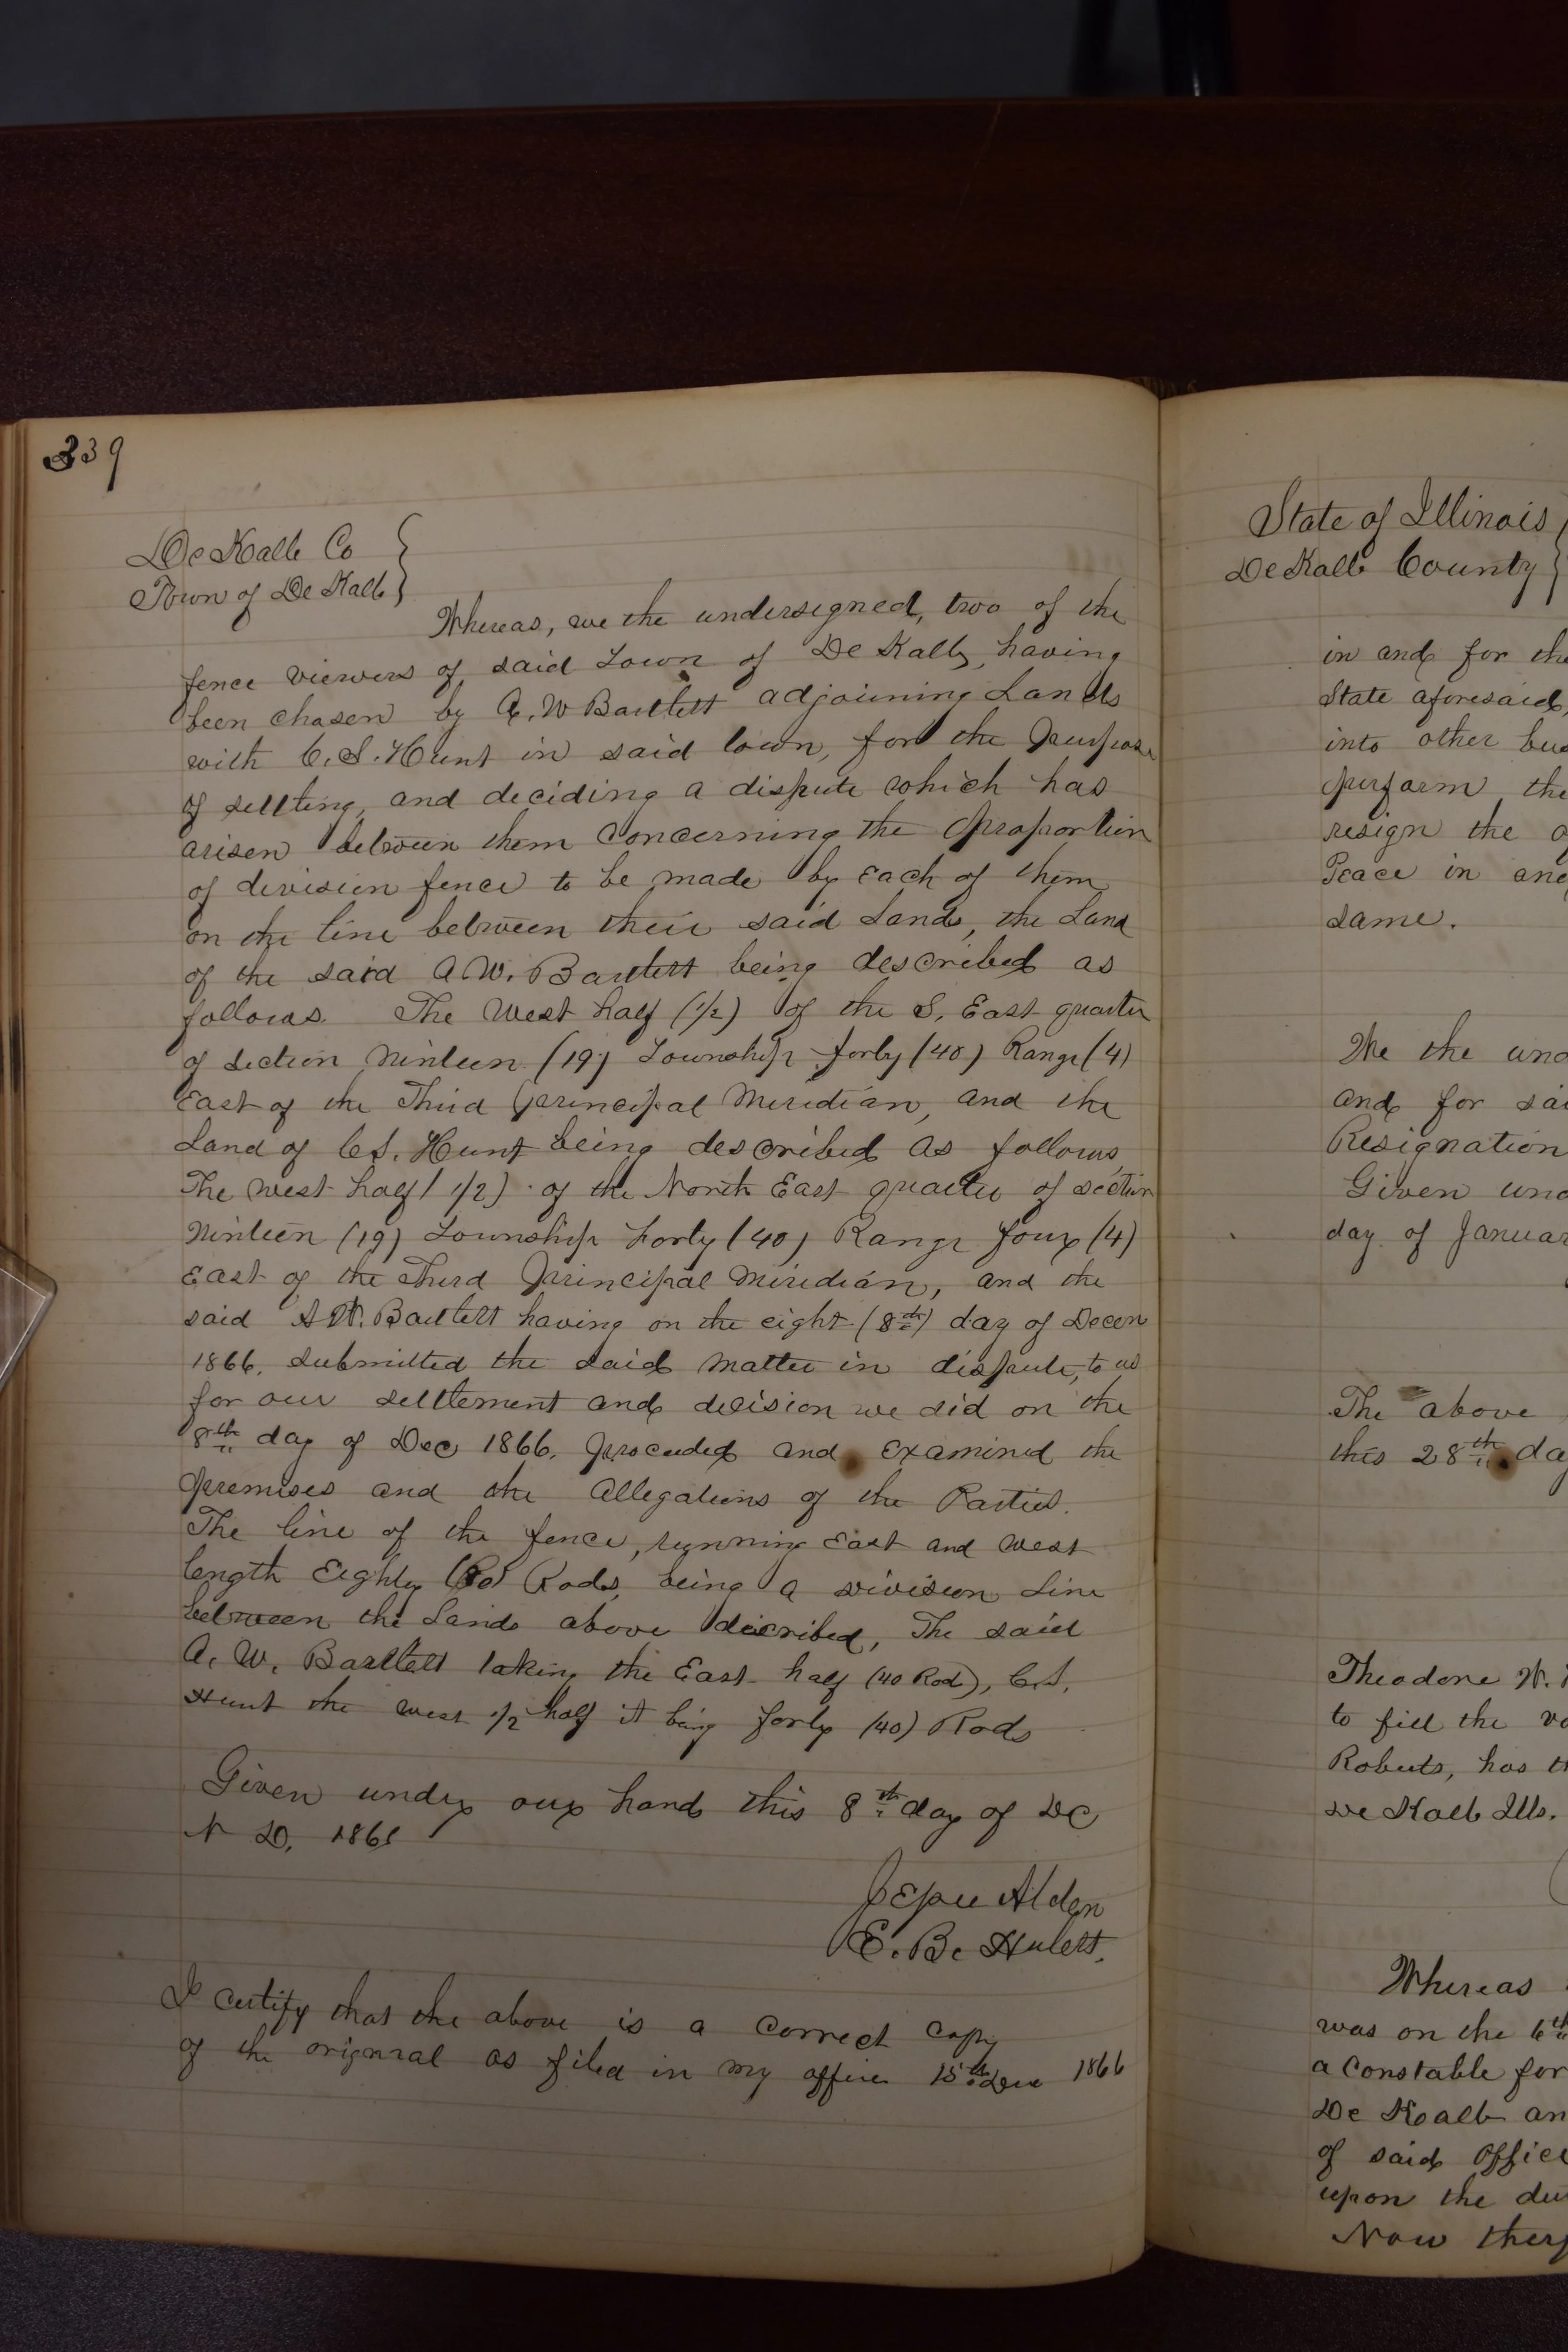 339
De Kalb Co
Town of De Kalb
Whereas, we the undersigned, two of the
fence viewers of said Town of De Kalb, having
been chosen by A. W Bartlett adjoining Lands
with C. S. Hunt in said town, for the Purpose
of settling, and deciding a dispute which has
arisen between them concerning the proportion
of division fence to be made by each of them
on the line between their said Lands, the Land
of the said A. W. Bartlett being described as
follows. The West half (1/2) of the S. East quarter
of section Ninteen (19) Township forty (40) Range (4)
East of the Third Principal Meridian, and the
Land of C. S. Hunt being described as follows,
The West half (1/2) of the North East quarter of section
Ninteen (19) Township Forty (40) Range four (4)
East of the Third Principal Meridian, and the
said A W. Bartlett having on the eight (8th) day of Decem
1866. submitted the said matter in dispute, to us
for our settlement and decision we did on the
8th day of Dec 1866. proceeded and examined the
premises and the allegations of the Parties.
The line of the fence, running East and West
length Eighty (80) Rods, being a division Line
between the Lands above described, The said
A. W. Bartlett taking the East half (40 Rods), C. S.
Hunt the West 1/2 half it being forty (40) Rods
Given under our hands this 8th day of Dc
D. 1866
Alden
E. B. Hulett.
I certify that the above is a correct Copy
of the original as filed in my office 15th Dec 1866
State of Illinois
De Kalb County
in and for the
State aforesaid,
into other bus
perform the
resign the o
Peace in and
same.
We the und
and for sai
Resignation
Given und
day of Januar
The above
this 28th da
Theodore W.
to fill the va
Roberts, has th
De Kalb Ills.
Whereas
was on the 6th
a Constable for
De Kalb an
of said Office
upon the du
Now ther